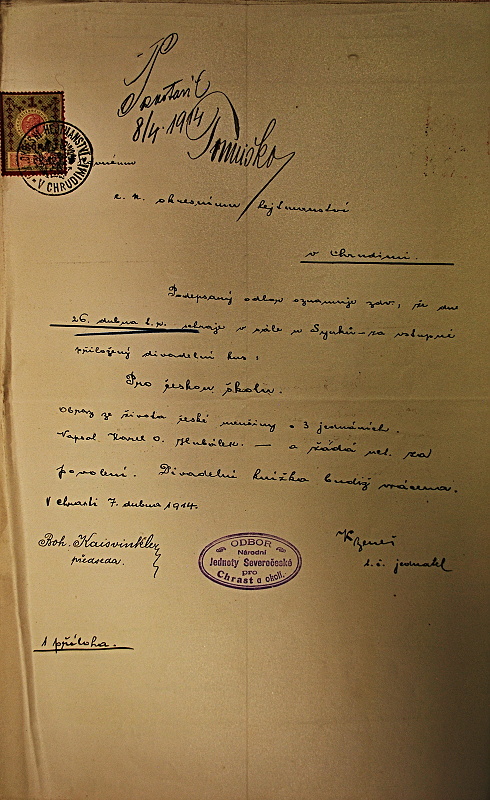 8/4. 1914
V CHRUDIMI
c. k. okresnímu hejtmanství
v Chrudimi.
Podepsaný odbor oznamuje zdv., že dne
26. dubna t. r. sehraje v sále u Synků za vstupné
přiložený divadelní kus:
Pro českou školu.
Obraz ze života české menšiny o 3 jednáních.
Napsal Karel O. Hubálek. — a žádá uct. za
povolení. Divadelní knížka budiž vrácena.
V Chrasti 7. dubna 1914.
Boh. Kaisvinkler
předseda.
ODBOR
Národní
Jednoty Severočeské
pro
Chrast a okolí.
t. č. jednatel
1 příloha.